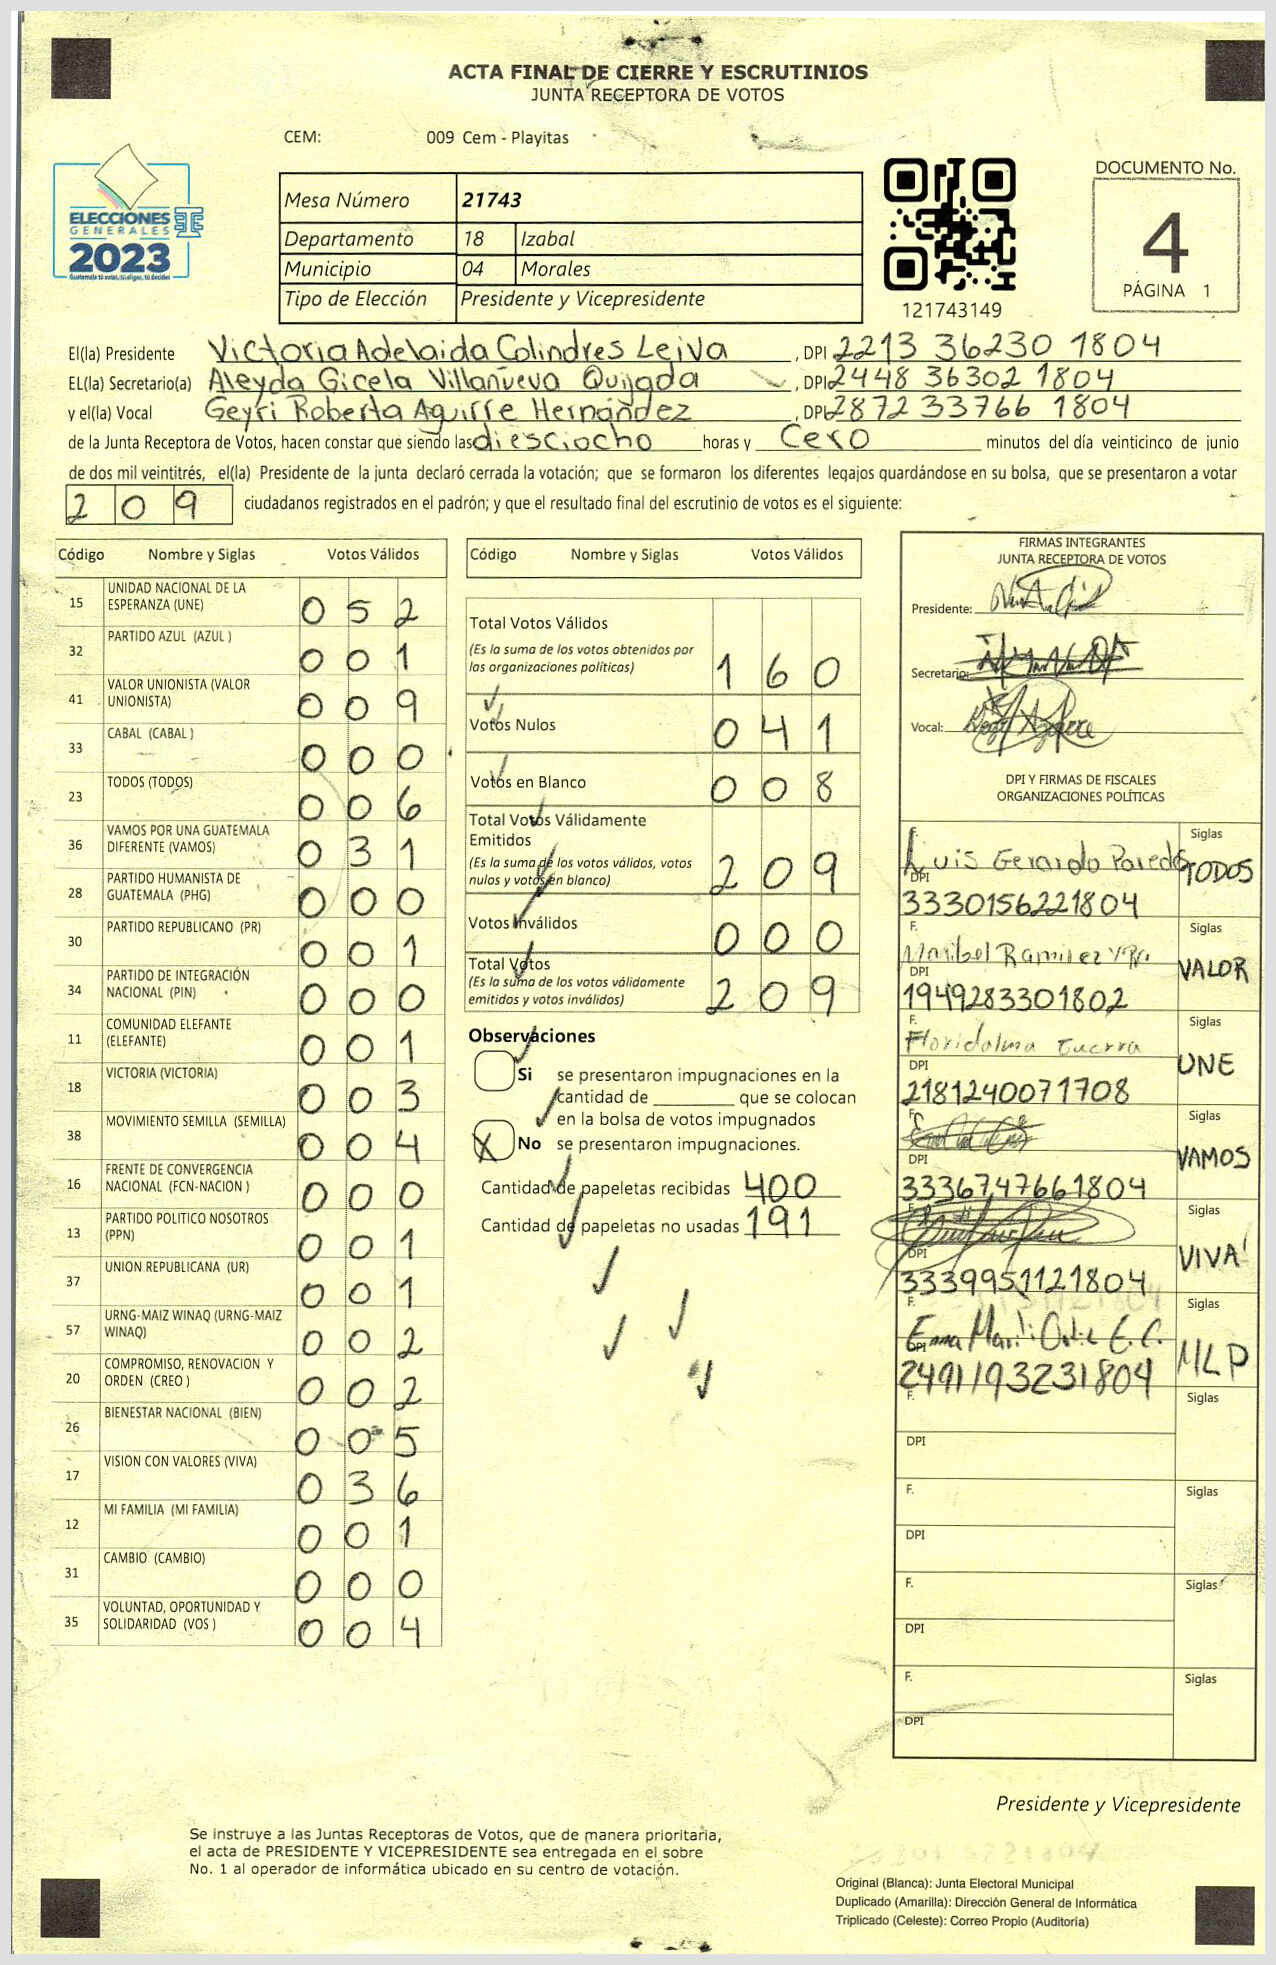 ACTA FINAL DE CIERRE Y ESCRUTINIOS
JUNTA RECEPTORA DE VOTOS
CEM: 009 Cem - Playitas
ELECCIONES
GENERALES
2023
Guatemala tú votas, tú eliges, tú decides
Mesa Número 21743
Departamento 18 Izabal
Municipio 04 Morales
Tipo de Elección Presidente y Vicepresidente
121743149
DOCUMENTO No.
4
PÁGINA 1
El(la) Presidente Victoria Adelaida Colindres Leiva, DPI 2213 36230 1804
EL(la) Secretario(a) Aleyda Gicela Villanueva Quijada, DPI 2448 36302 1804
y el(la) Vocal Geyri Roberta Aguirre Hernández, DPI 2872 33766 1804
de la Junta Receptora de Votos, hacen constar que siendo las diesciocho horas y Cero minutos del día veinticinco de junio
de dos mil veintitrés, el(la) Presidente de la junta declaró cerrada la votación; que se formaron los diferentes legajos quardándose en su bolsa, que se presentaron a votar
209 ciudadanos registrados en el padrón; y que el resultado final del escrutinio de votos es el siguiente:
Código Nombre y Siglas Votos Válidos
15 UNIDAD NACIONAL DE LA ESPERANZA (UNE) 052
32 PARTIDO AZUL (AZUL ) 001
41 VALOR UNIONISTA (VALOR UNIONISTA) 009
33 CABAL (CABAL ) 000
23 TODOS (TODOS) 006
36 VAMOS POR UNA GUATEMALA DIFERENTE (VAMOS) 031
28 PARTIDO HUMANISTA DE GUATEMALA (PHG) 000
30 PARTIDO REPUBLICANO (PR) 001
34 PARTIDO DE INTEGRACIÓN NACIONAL (PIN) 000
11 COMUNIDAD ELEFANTE (ELEFANTE) 001
18 VICTORIA (VICTORIA) 003
38 MOVIMIENTO SEMILLA (SEMILLA) 004
16 FRENTE DE CONVERGENCIA NACIONAL (FCN-NACION ) 000
13 PARTIDO POLITICO NOSOTROS (PPN) 001
37 UNION REPUBLICANA (UR) 001
57 URNG-MAIZ WINAQ (URNG-MAIZ WINAQ) 002
20 COMPROMISO, RENOVACION Y ORDEN (CREO ) 002
26 BIENESTAR NACIONAL (BIEN) 005
17 VISION CON VALORES (VIVA) 036
12 MI FAMILIA (MI FAMILIA) 001
31 CAMBIO (CAMBIO) 000
35 VOLUNTAD, OPORTUNIDAD Y SOLIDARIDAD (VOS ) 004
Código Nombre y Siglas Votos Válidos
Total Votos Válidos
(Es la suma de los votos obtenidos por
las organizaciones políticas) 160
Votos Nulos 041
Votos en Blanco 008
Total Votos Válidamente
Emitidos
(Es la suma de los votos válidos, votos
nulos y votos en blanco) 209
Votos Inválidos 000
Total Votos
(Es la suma de los votos válidamente
emitidos y votos inválidos) 209
Observaciones
Si se presentaron impugnaciones en la
cantidad de ________ que se colocan
en la bolsa de votos impugnados
X No se presentaron impugnaciones.
Cantidad de papeletas recibidas 400
Cantidad de papeletas no usadas 191
FIRMAS INTEGRANTES
JUNTA RECEPTORA DE VOTOS
Presidente:
Secretario:
Vocal:
DPI Y FIRMAS DE FISCALES
ORGANIZACIONES POLÍTICAS
F. Luis Gerardo Paredes Siglas TODOS
DPI 3330156221804
F. Maribel Ramirez Siglas VALOR
DPI 1949283301802
F. Floridalma Guerra Siglas UNE
DPI 2181240071708
F. Siglas VAMOS
DPI 3336747661804
F. Siglas VIVA
DPI 3339951121804
F. Siglas MLP
DPI 2491193231804
F. Siglas
DPI
F. Siglas
DPI
F. Siglas
DPI
F. Siglas
DPI
Presidente y Vicepresidente
Se instruye a las Juntas Receptoras de Votos, que de manera prioritaria,
el acta de PRESIDENTE Y VICEPRESIDENTE sea entregada en el sobre
No. 1 al operador de informática ubicado en su centro de votación.
Original (Blanca): Junta Electoral Municipal
Duplicado (Amarilla): Dirección General de Informática
Triplicado (Celeste): Correo Propio (Auditoría)